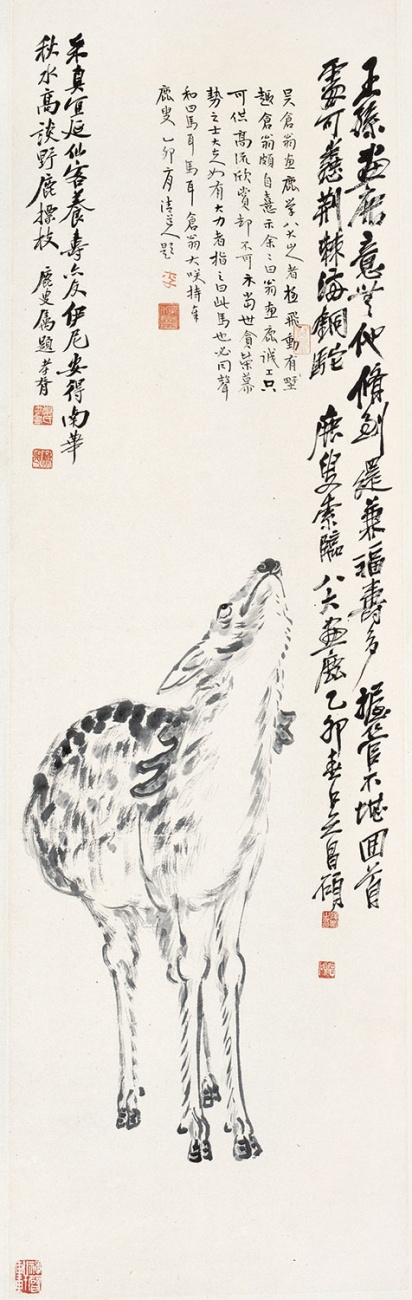 王孫畫鹿意無他脩到還兼福壽多握管不堪回首
處可憐荊棘海銅駝 鹿叟索臨八大畫鹿乙卯春吳昌碩
吳倉翁畫鹿學八大山人者極飛動有野
趣倉翁頗自憙示余余曰翁畫鹿誠工只
可供高流欣賞却不可示當世貪榮慕
勢之士大夫如有大力者指之曰此馬也必同聲
和曰馬耳馬耳倉翁大咲持寄
鹿叟乙卯清道人題
采真宜返仙客養壽六友伊尼安得南華
秋水高談野鹿標枝 鹿叟屬題孝胥